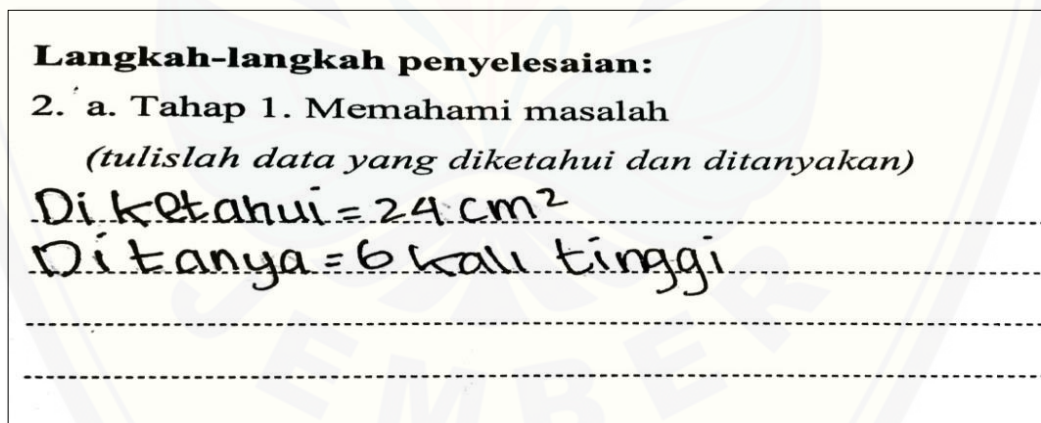 Langkah-langkah penyelesaian:
2. a. Tahap 1. Memahami masalah
(tulislah data yang diketahui dan ditanyakan)
Diketahui = 24 cm²
Ditanya = 6 kali tinggi
JEMBER